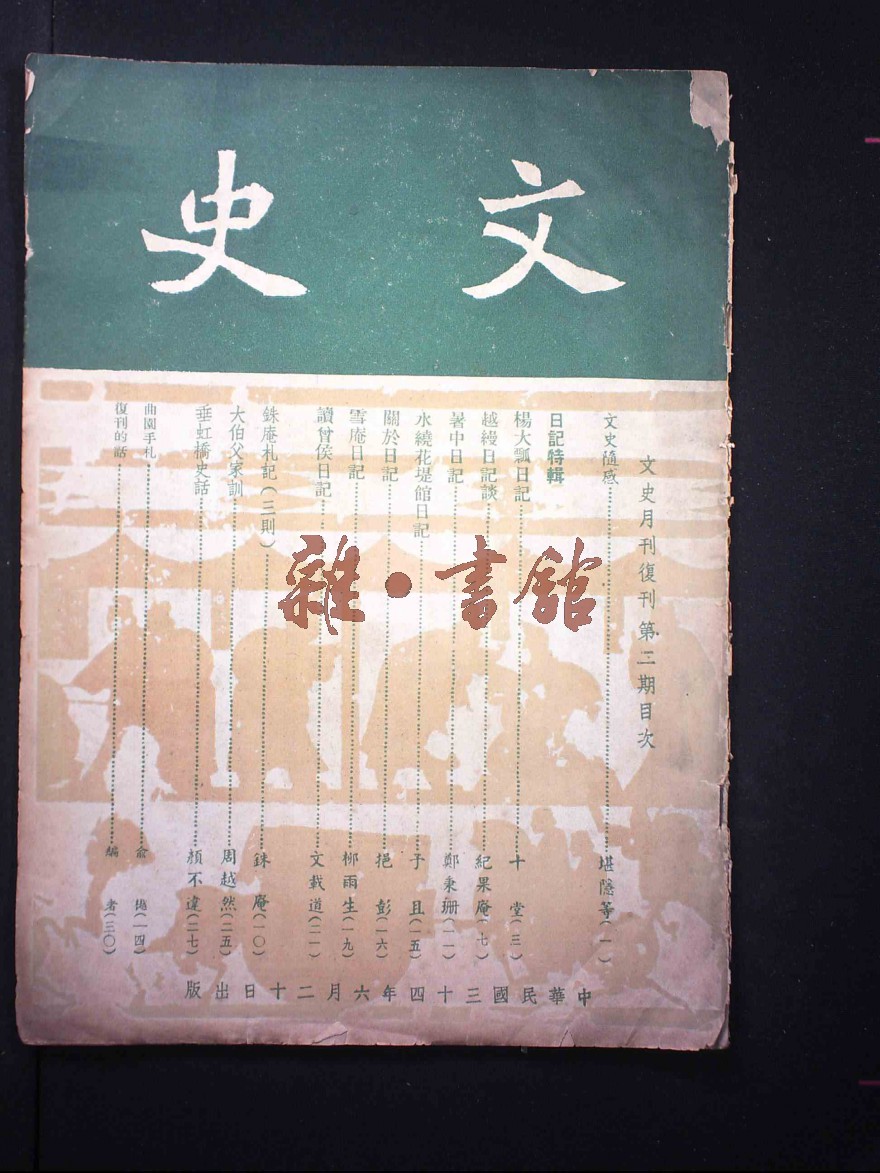 文史
文史月刊復刊第二期目次
文史隨感……堪隱等（一）
日記特輯
楊大瓢日記……十堂（三）
越縵日記談……紀果庵（七）
暑中日記……鄭秉珊（一一）
水繞花堤館日記……子且（一五）
關於日記……挹彭（一六）
雪庵日記……柳雨生（一九）
讀曾侯日記……文載道（二一）
銖庵札記（三則）……銖庵（一〇）
大伯父家訓……周越然（二五）
垂虹橋史話……顏不違（二七）
曲園手札……俞樾（一四）
復刊的話……編者（三〇）
中華民國三十四年六月二十日出版
雜·書館